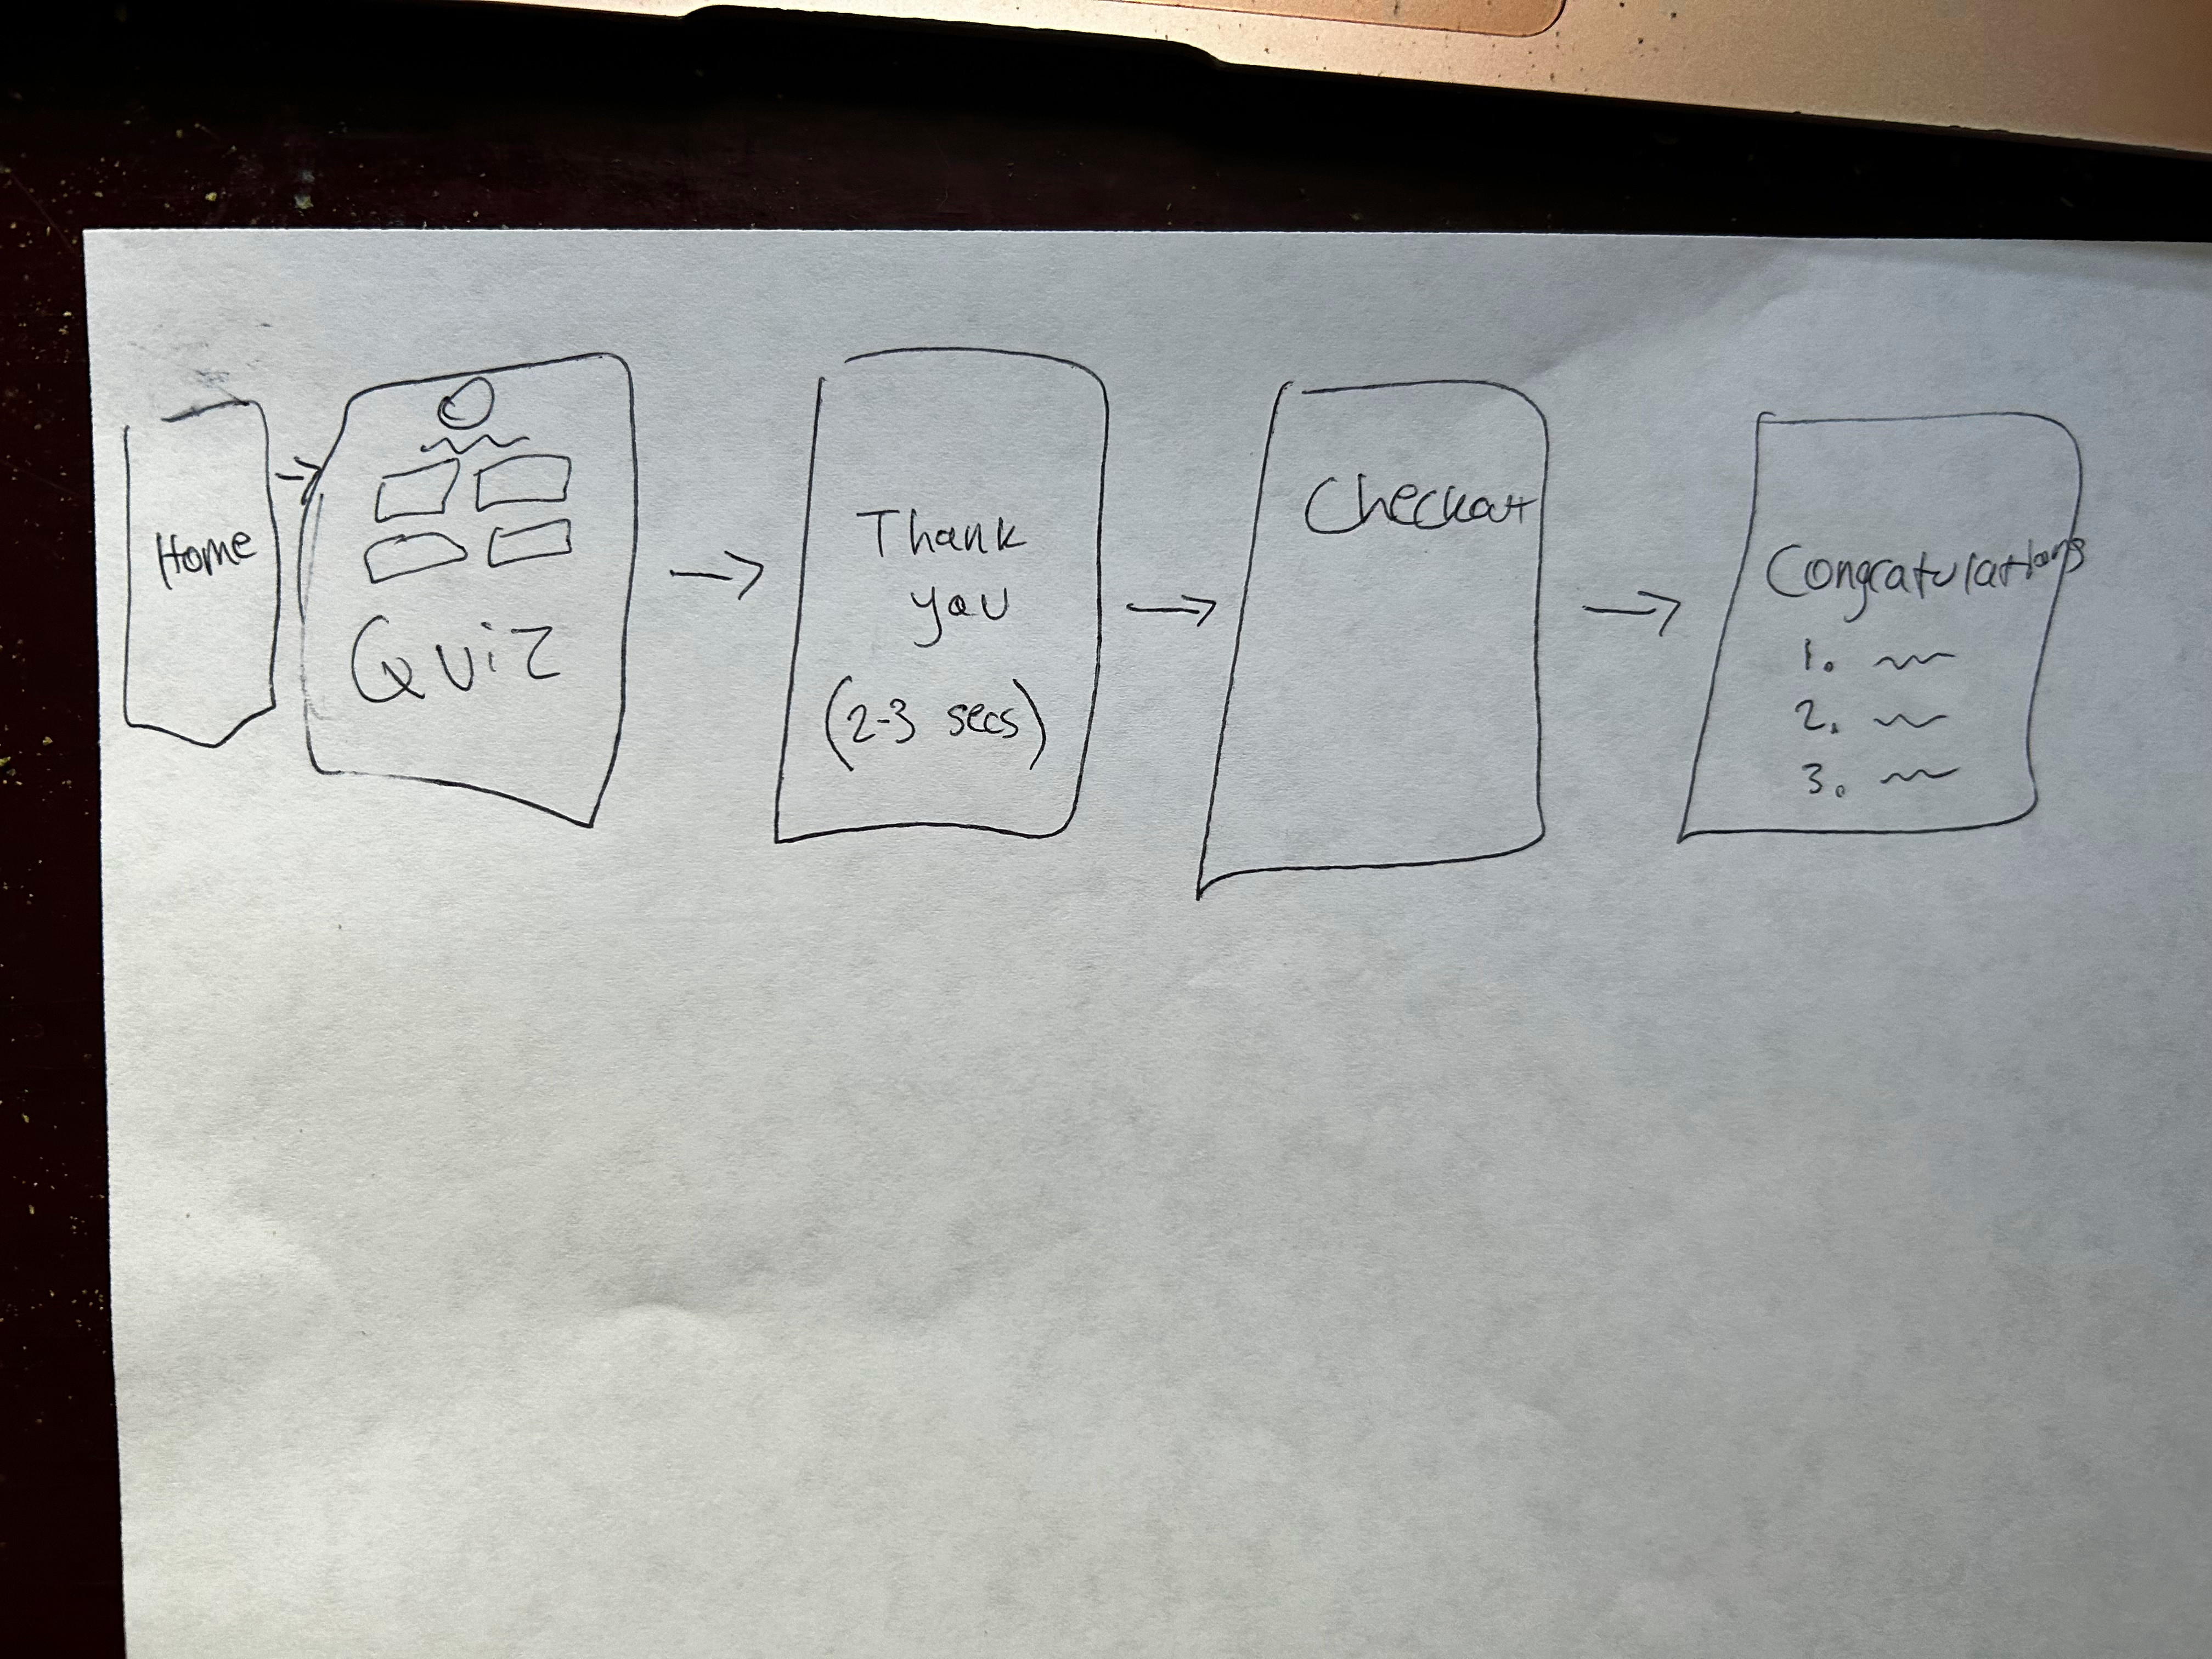 Home
Quiz
Thank
you
(2-3 secs)
Checkout
Congratulations
1.
2.
3.